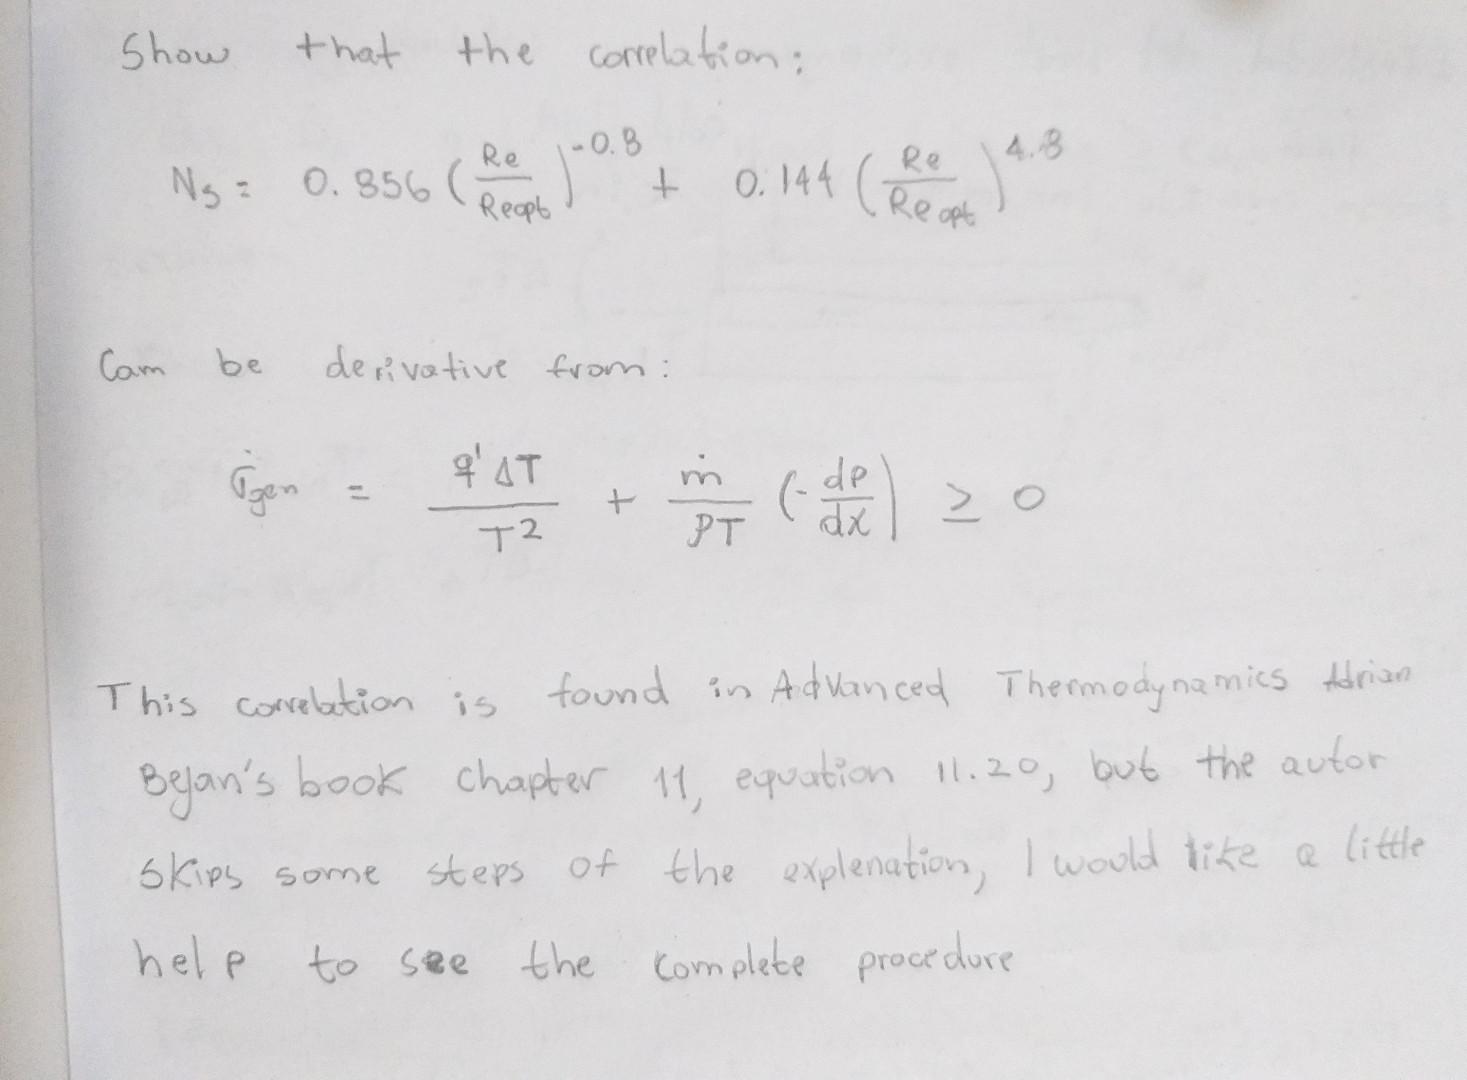 Show that the correlation:
Ns = 0.856 (Re/Reopt)^-0.8 + 0.144 (Re/Reopt)^4.8
Cam be derivative from:
Ṡgen = q'ΔT/T² + ṁ/ρT (-dp/dx) ≥ 0
This correlation is found in Advanced Thermodynamics Adrian
Bejan's book chapter 11, equation 11.20, but the autor
skips some steps of the explenation, I would like a little
help to see the complete procedure